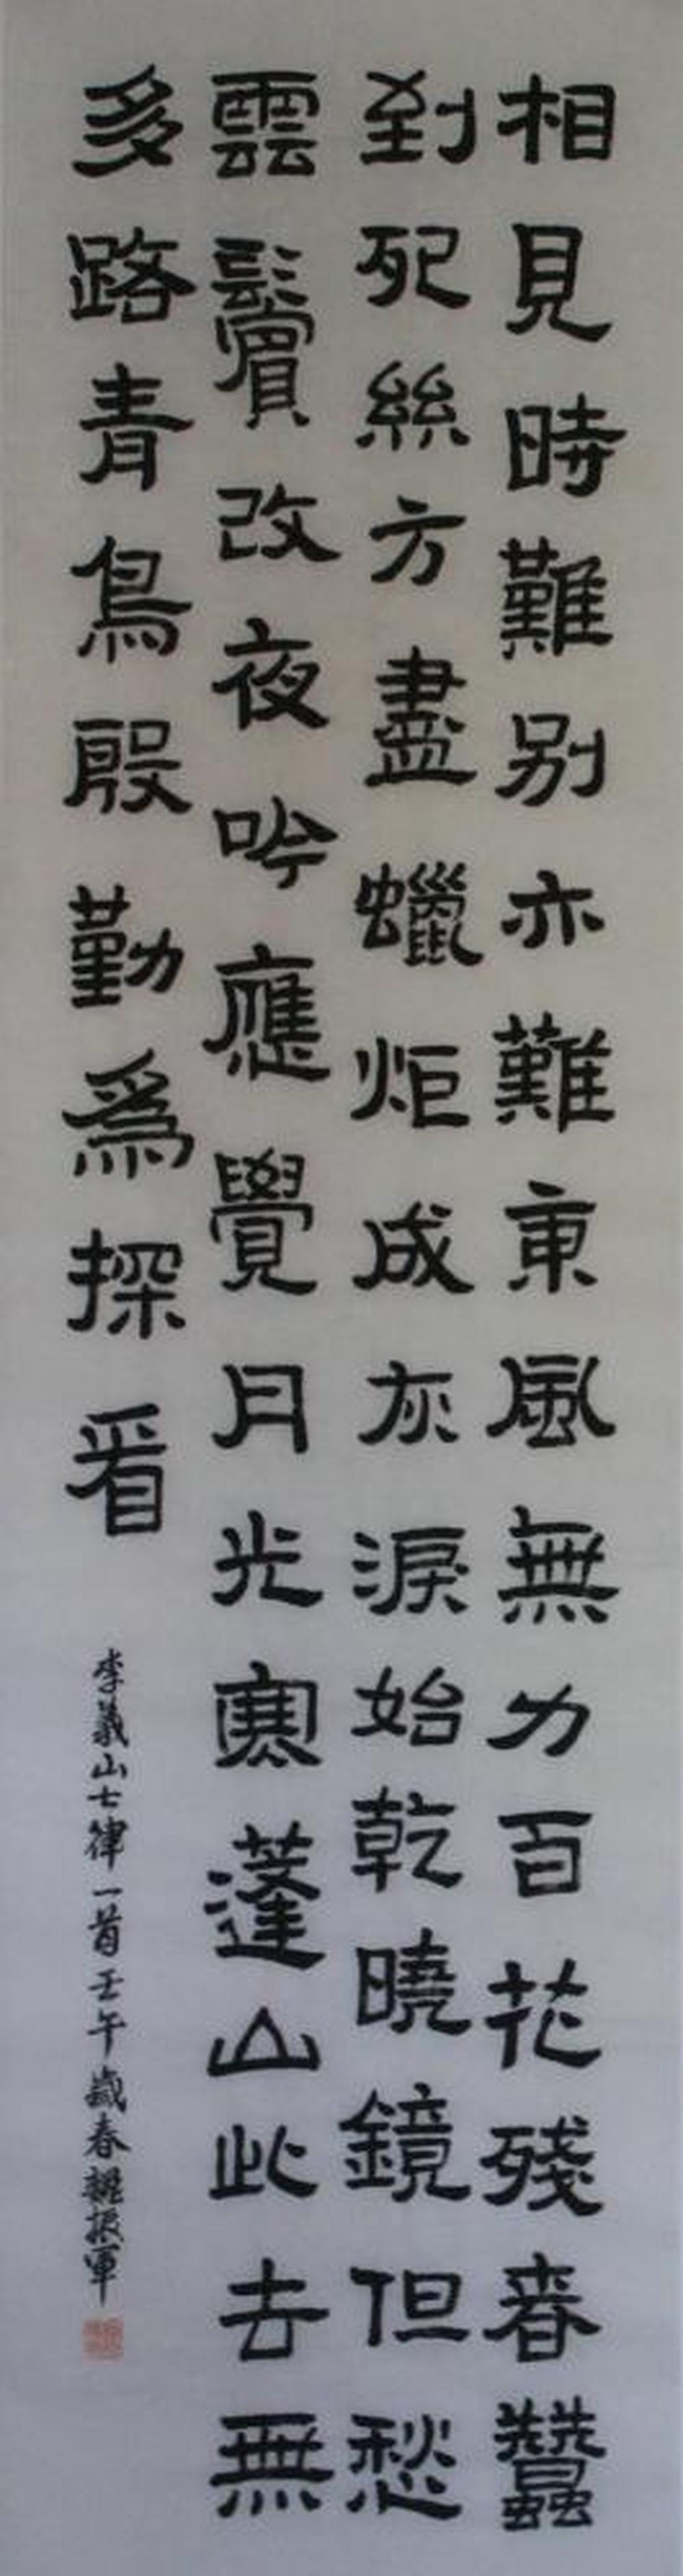 相見時難别亦難東風無力百花殘春蠶
到死絲方盡蠟炬成灰淚始乾曉鏡但愁
雲鬢改夜吟應覺月光寒蓬山此去無
多路青鳥殷勤為探看
李義山七律一首壬午歲春 振軍